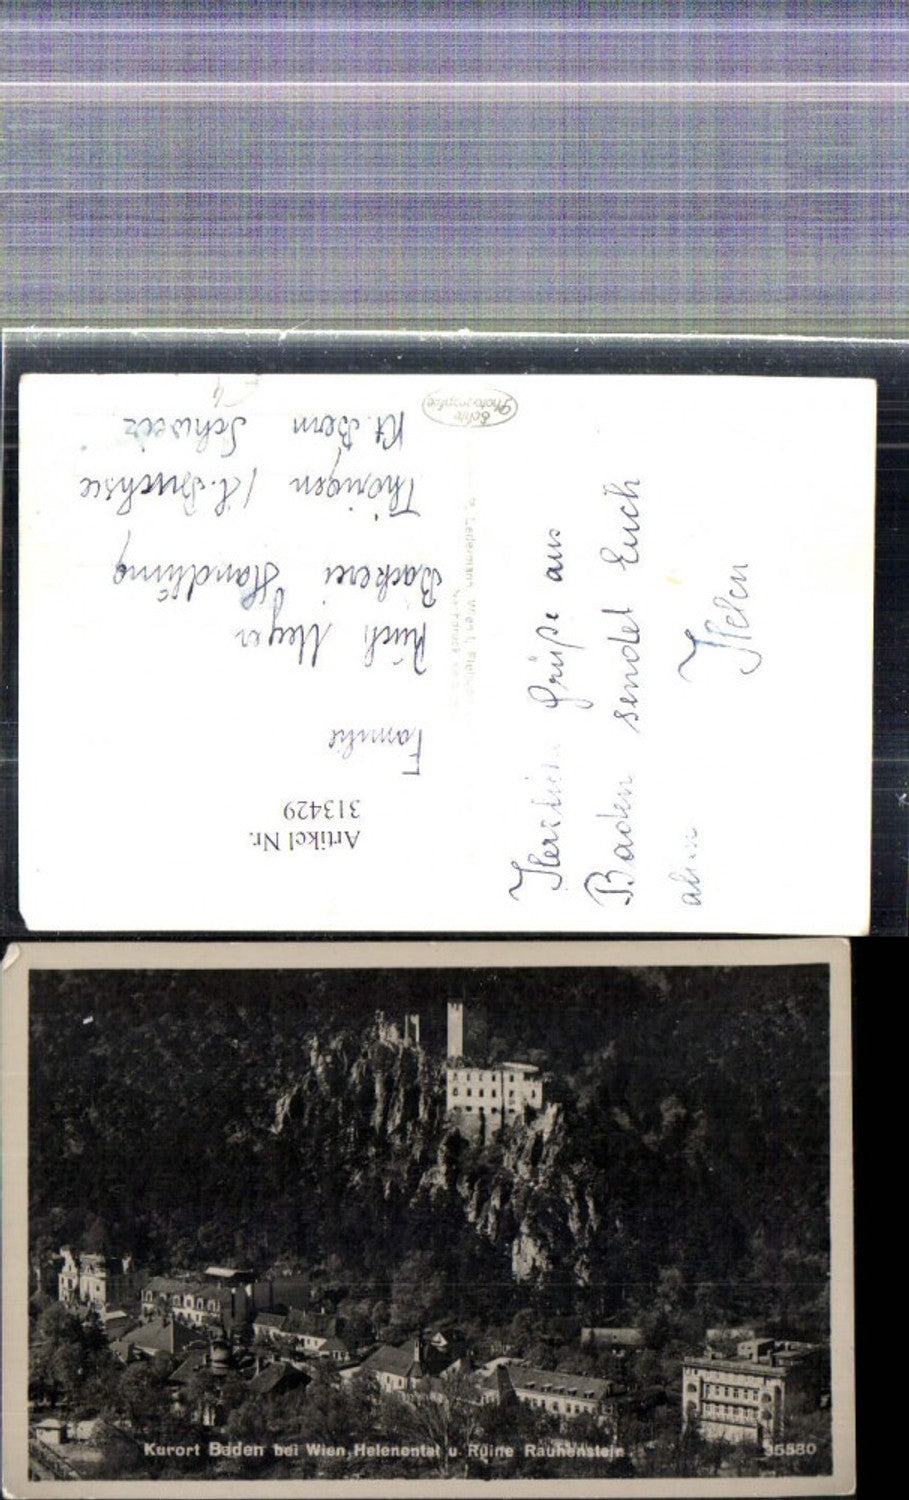 Echte
Photographie
Artikel Nr.
313429
Familie
Meyer
Bäckerei Handlung
Thörigen
Kt. Bern Schweiz
Grüße aus
Baden sendet Euch
Helen
Kurort Baden bei Wien, Helenental u. Ruine Rauhenstein.